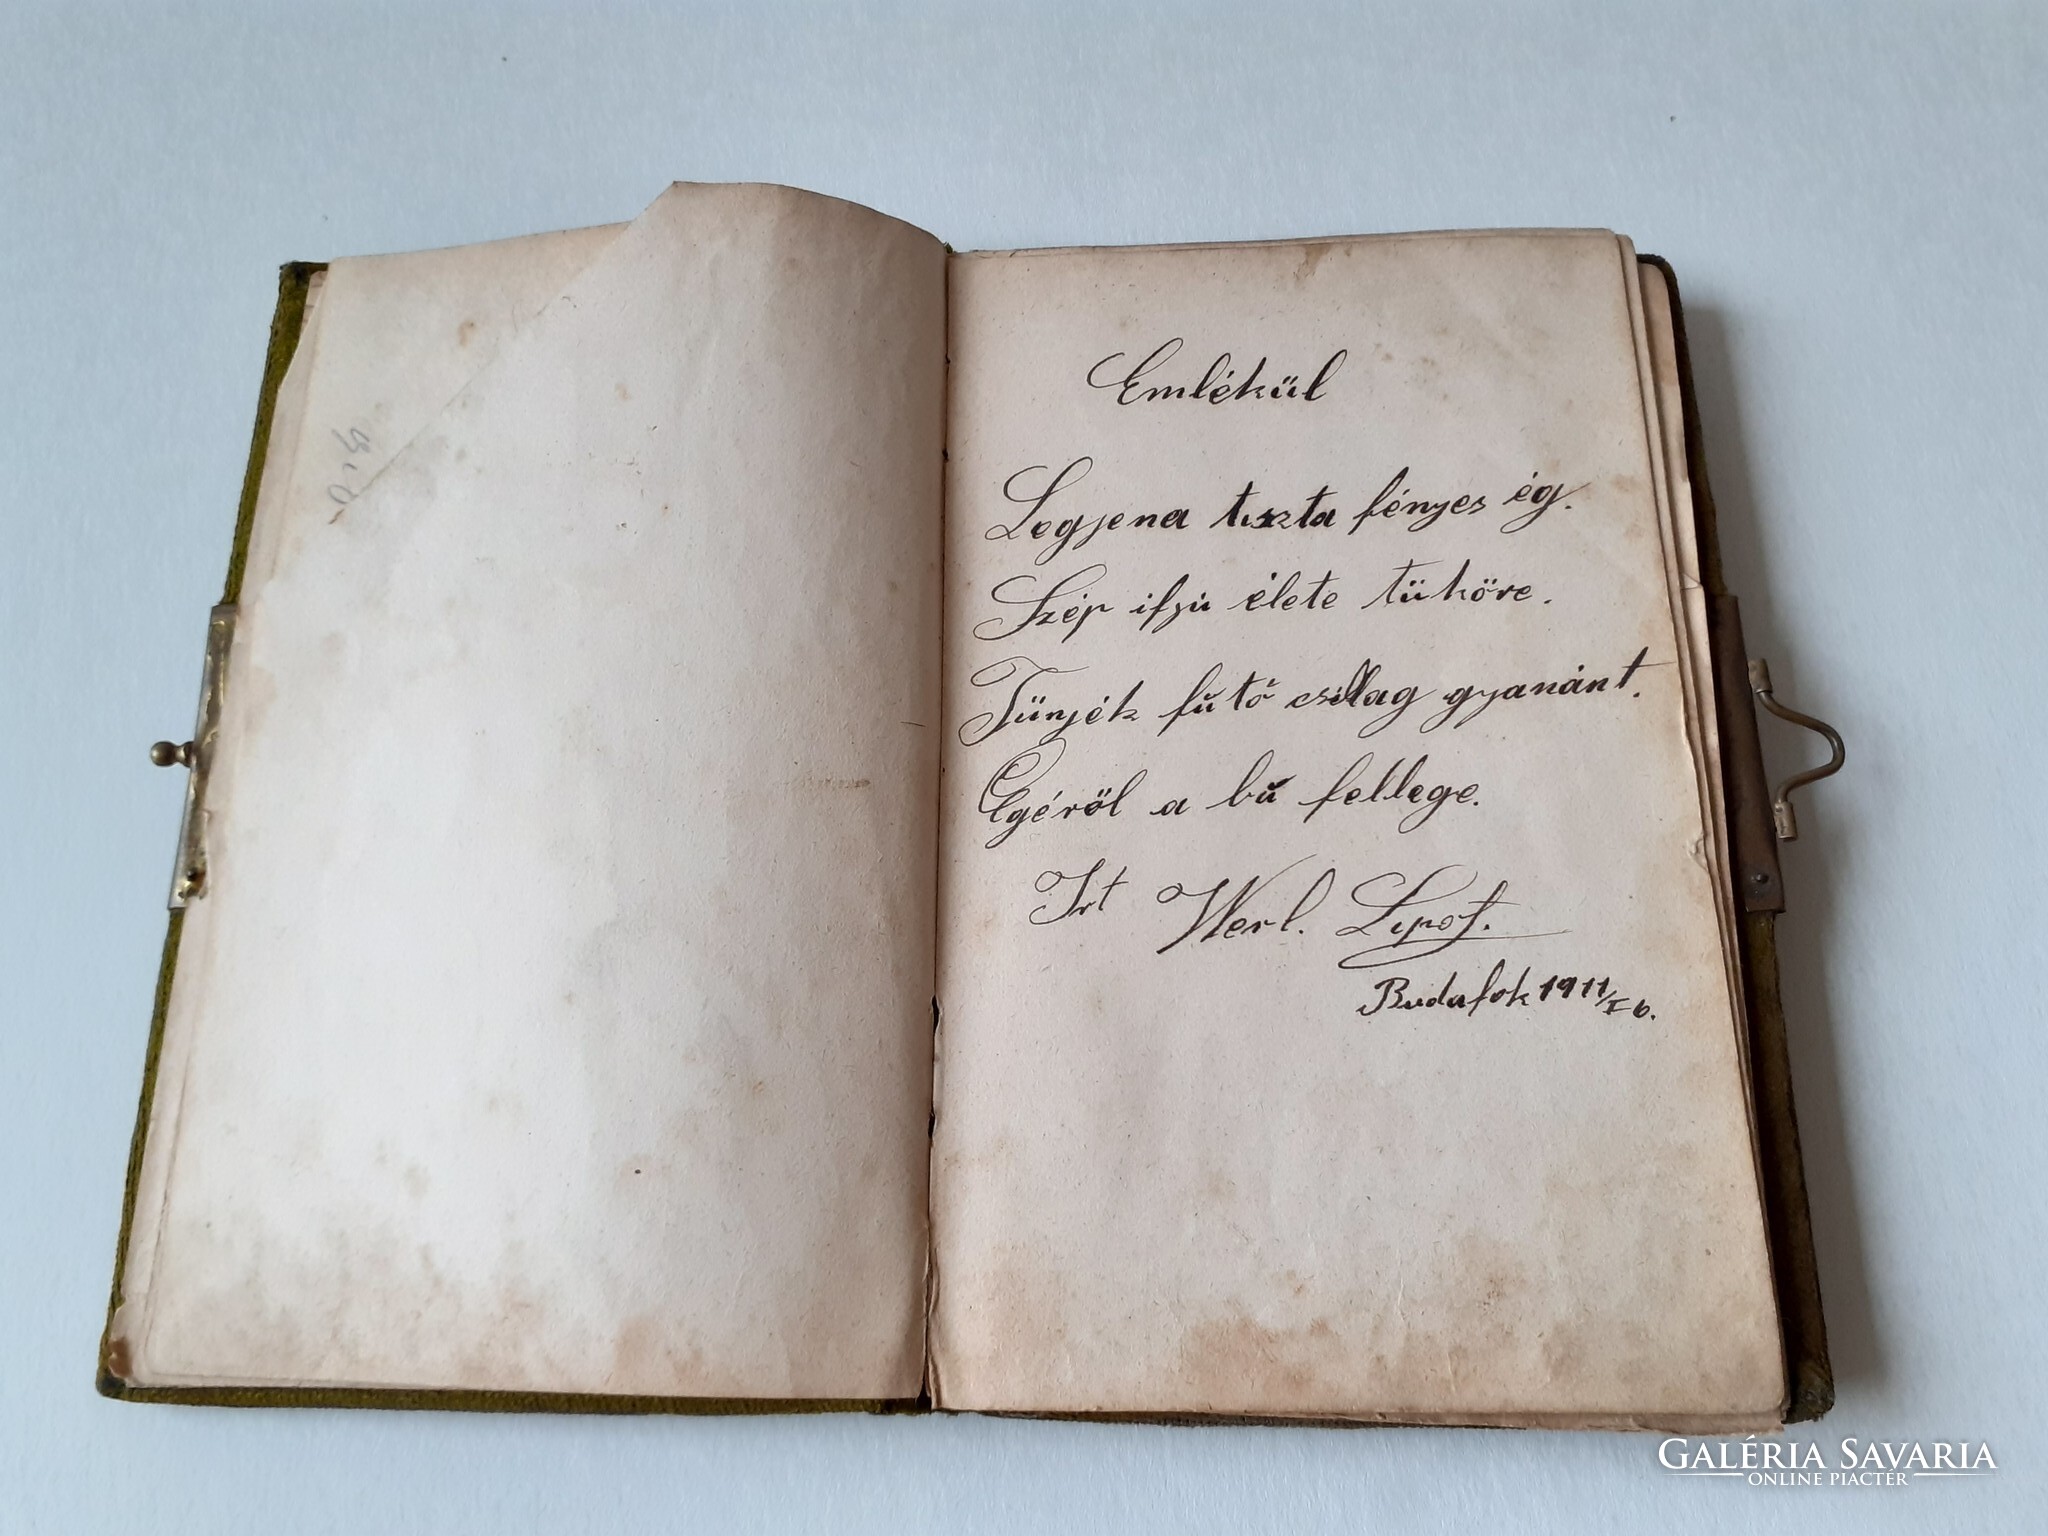 Emlékül
Legjena tiszta fényes ég.
Szép ifju élete tüköre.
Tünjék futó csillag gyanánt.
Egéről a bú fellege.
Irt Werl. Lipot.
Budafok 1911/I 6.
GALÉRIA SAVARIA
ONLINE PIACTÉR